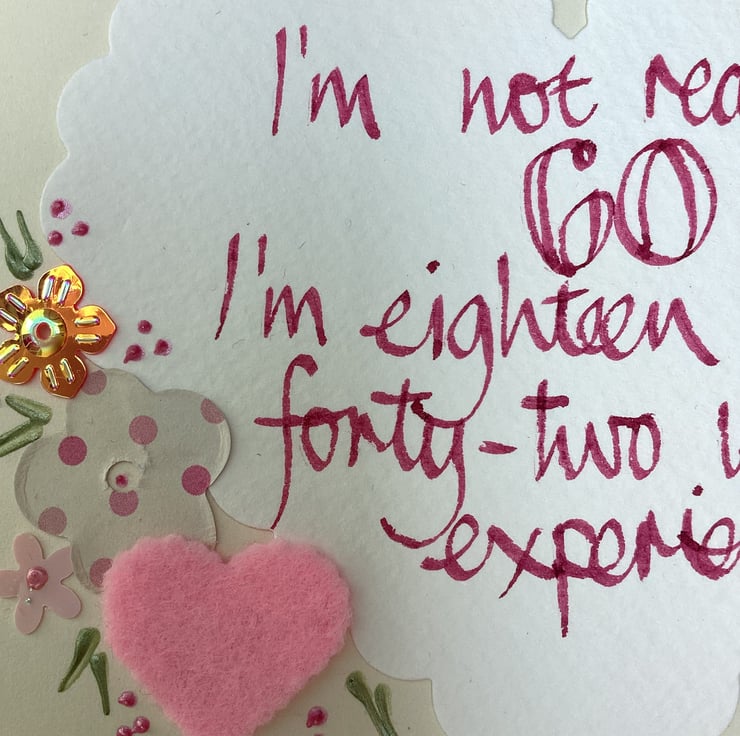 I'm not rea
60
I'm eighteen
forty-two
experie